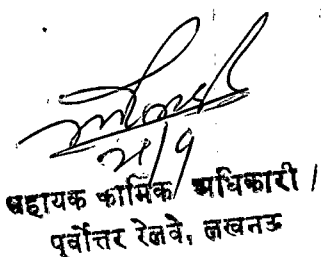 सहायक कार्मिक अधिकारी /
पूर्वोत्तर रेलवे, लखनऊ